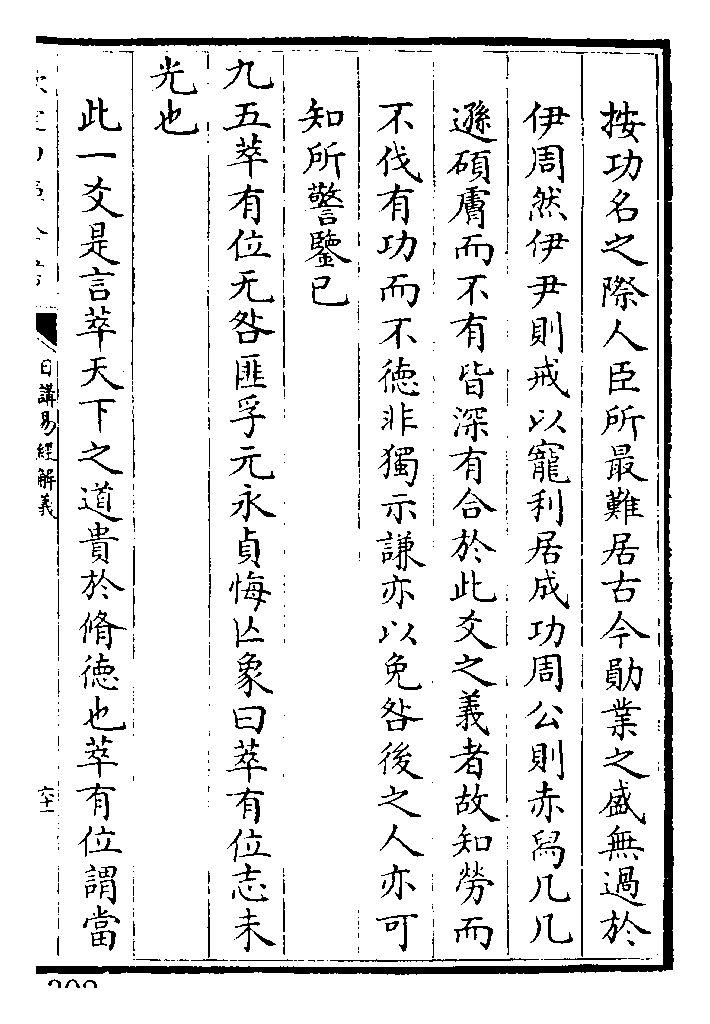 按功名之際人臣所最難居古今勛業之盛無過於
伊周然伊尹則戒以寵利居成功周公則赤舄几几
遜碩膚而不有皆深有合於此爻之義者故知勞而
不伐有功而不徳非獨示謙亦以免咎後之人亦可
知所警鑒已
九五萃有位无咎匪孚元永貞悔亾象曰萃有位志未
光也
此一爻是言萃天下之道貴於脩徳也萃有位謂當
日講易經解義
六十一